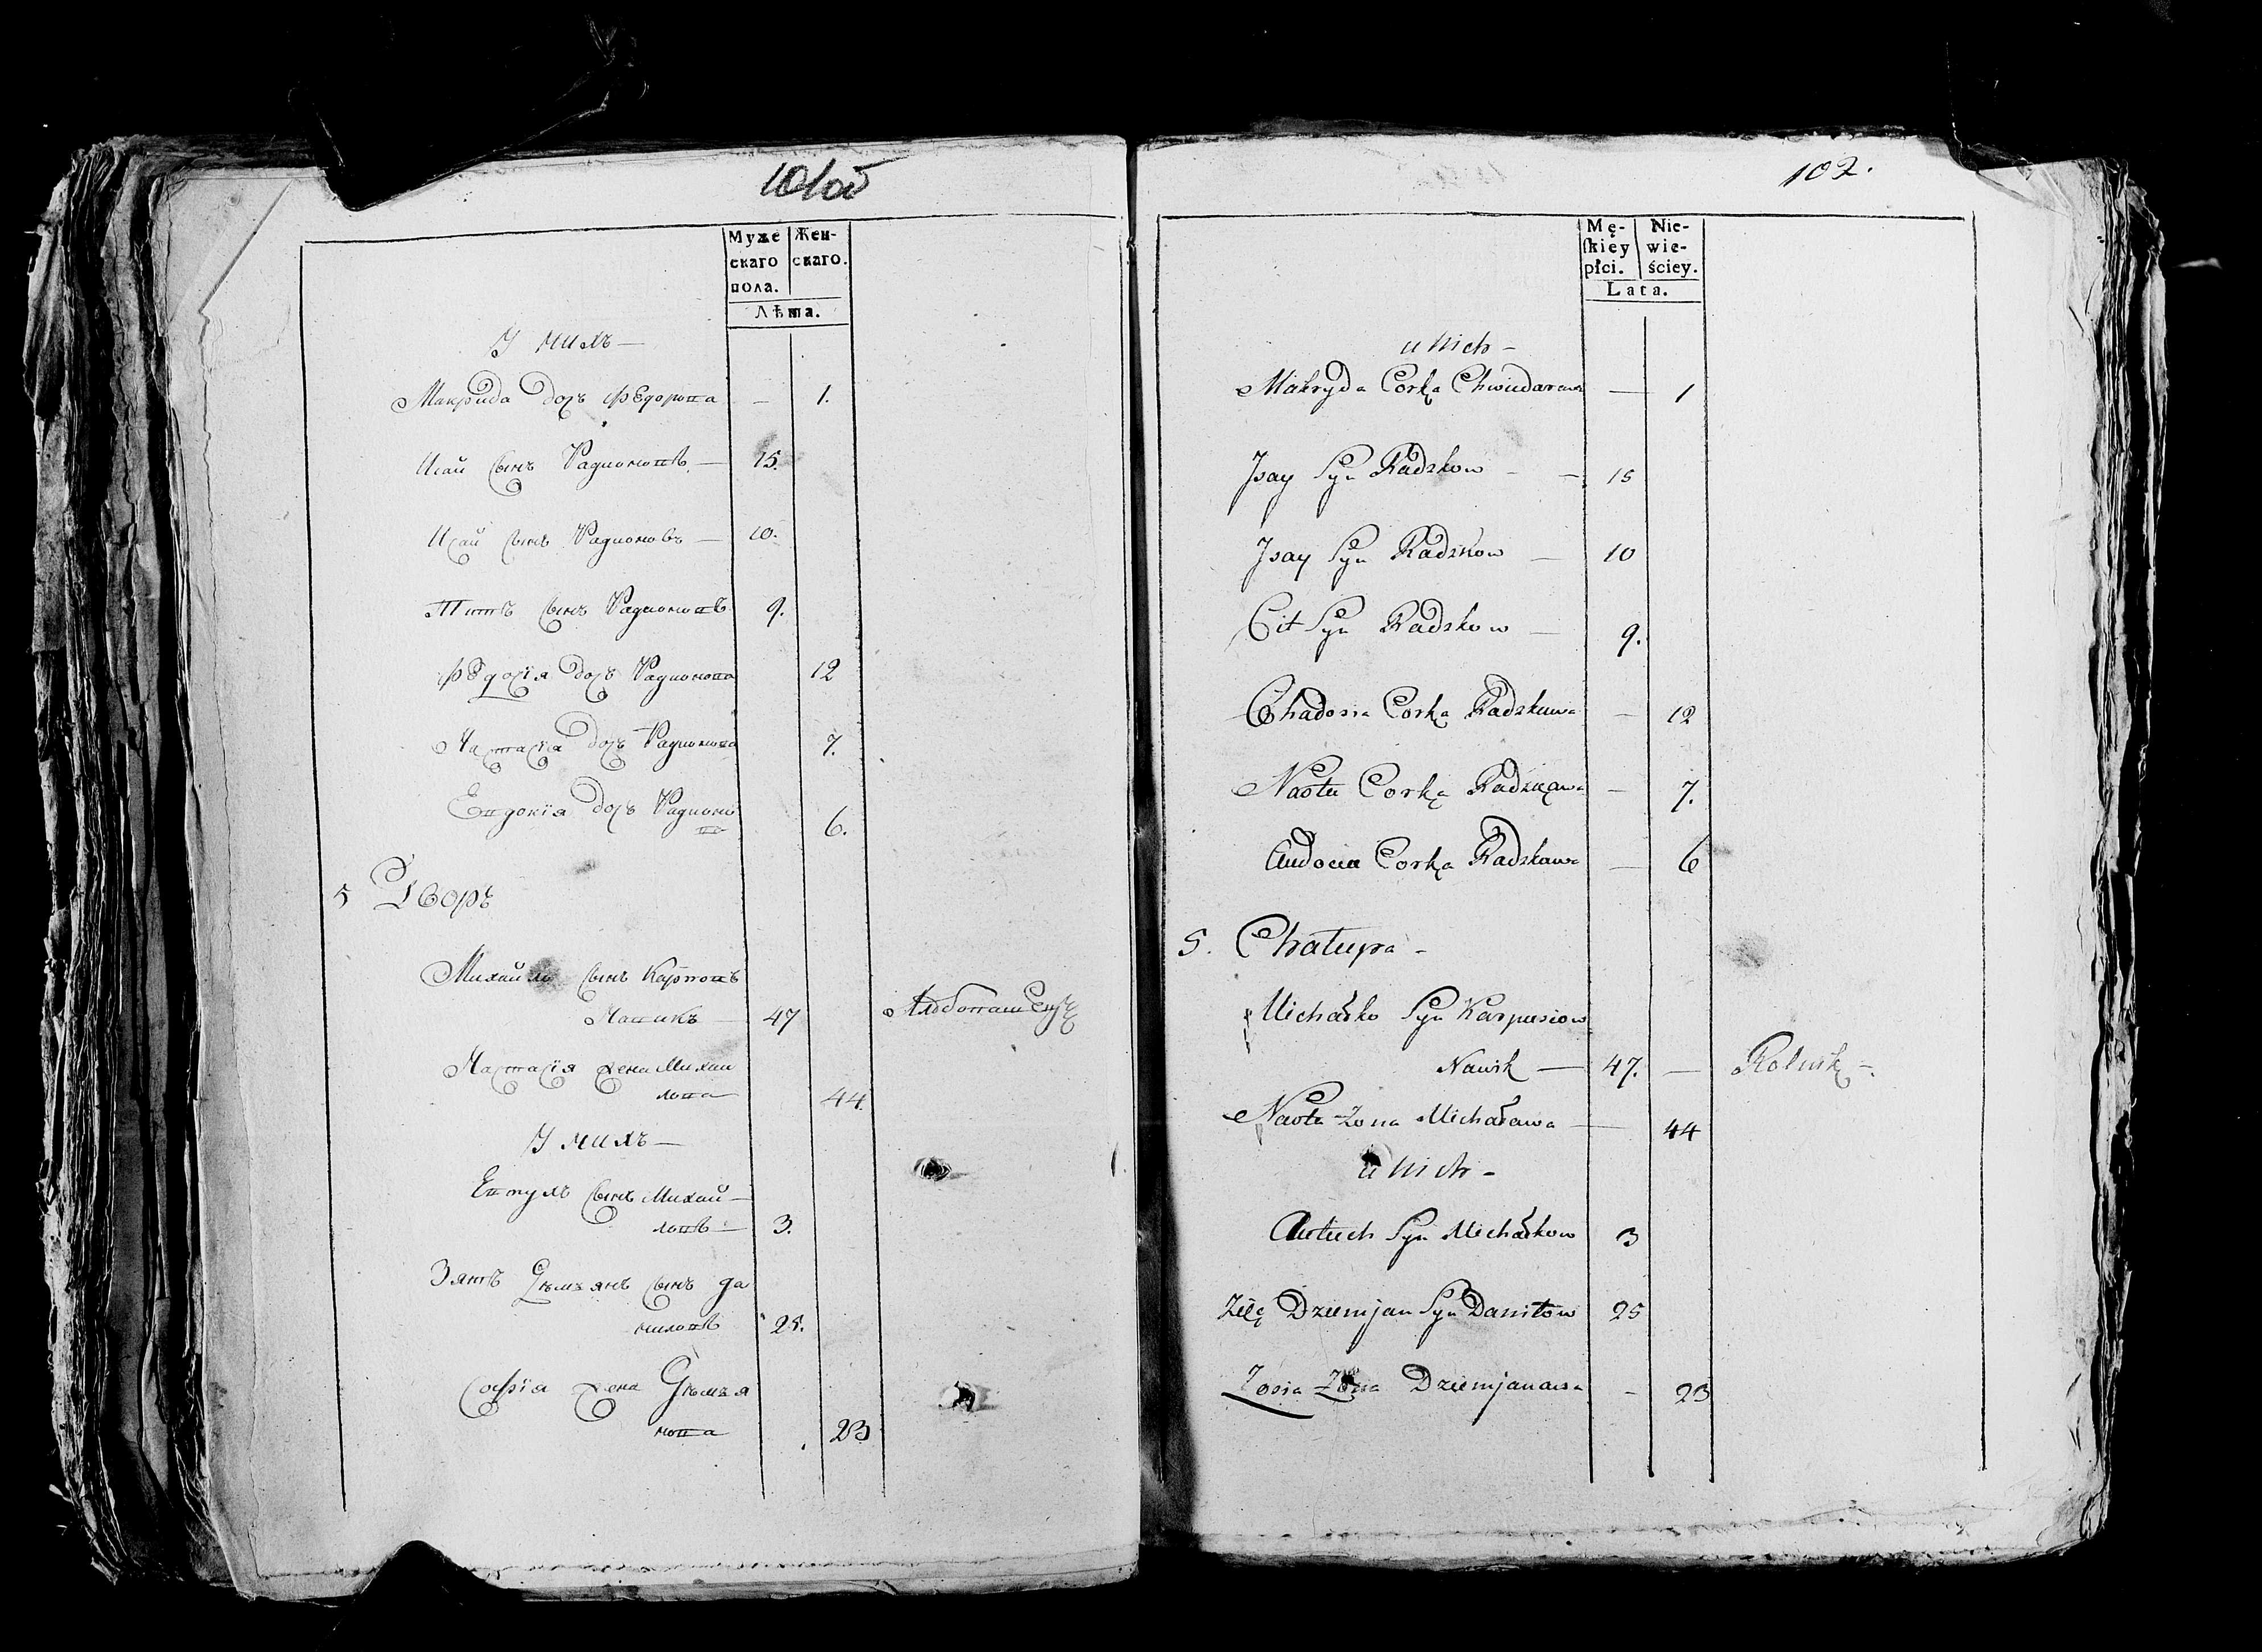 101об
Муже
скаго
пола.
Жен-
скаго.
Лѣта.
У нихъ —
Макрида дочь Федорова — 1.
Исай сынъ Радионовъ — 15.
Исай сынъ Радионовъ — 10.
Титъ сынъ Радионовъ 9.
Федосія дочь Радионова 12
Настасія дочь Радионова 7.
Евдокія дочь Радионо
ва 6.
5 Дворъ
Михайло сынъ Карповъ
47
Настасія жена Михаи
лова 44.
У нихъ —
Евтухъ сынъ Михай —
ловъ — 3.
Зять Демьянъ сынъ Да
ниловъ 25.
Софія жена Демья
нова 23
102.
Mę-
ſkiey
płci.
Nie-
wie-
ściey.
Lata.
u Nich -
Makryda Corka Chwiedarawa — 1
Jsay Syn Radzkow - - 15
Jsay Syn Radzkow — 10
Cit Syn Radzkow — 9.
Chadosia Corka Radzkawa — 12
Nasta Corka Radzkawa — 7.
Audocia Corka Radzkawa — 6
5. Chałupa -
Michałko Syn Karpusiow
47. — Rolnik -.
Nasta Zona Michaława — 44
u Nich -
Autuch Syn Michałkow 3
Zięć Dziemjan Syn Daniłow 25
Zosia Zona Dziemjanawa - 23